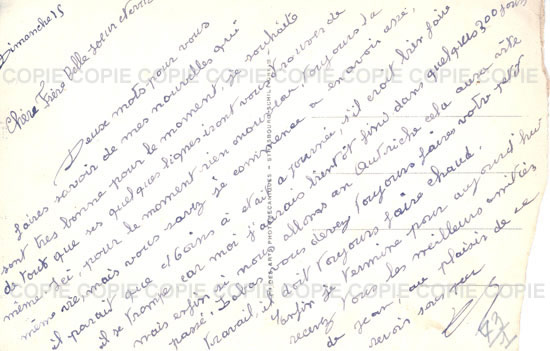 Dimanche 15
Chère Frère Belle soeur et
Deux mots pour vous
faires savoir de mes nouvelles qui
sont très bonne pour le moment, je souhaite
de tout que ses quelques lignes iront vous trouves de
même. Ici, pour le moment rien nouveau, toujours la
même vie, mais vous savez je commence a en avoir assé,
il parait que à était a tournée, s'il croit bien faire
il se trompe car moi j'aurais bientôt fini dans quelques 300 jours
mais enfin si nous allons an Autriche cela aura vite
passé. vous devez toujours faires votre petit
travail, il doit toujours faire chaud.
Enfin je termine pour aujourd'hui
recevez tous les meilleurs amitiés
de Jean, au plaisir de ce
revoir sous peu
PHOTOMECANIQUES - STRASBOURG-SCHILTIGHEIM
COPIE COPIE COPIE COPIE COPIE COPIE COPIE
COPIE COPIE COPIE COPIE COPIE COPIE COPIE
COPIE COPIE COPIE COPIE COPIE COPIE COPIE